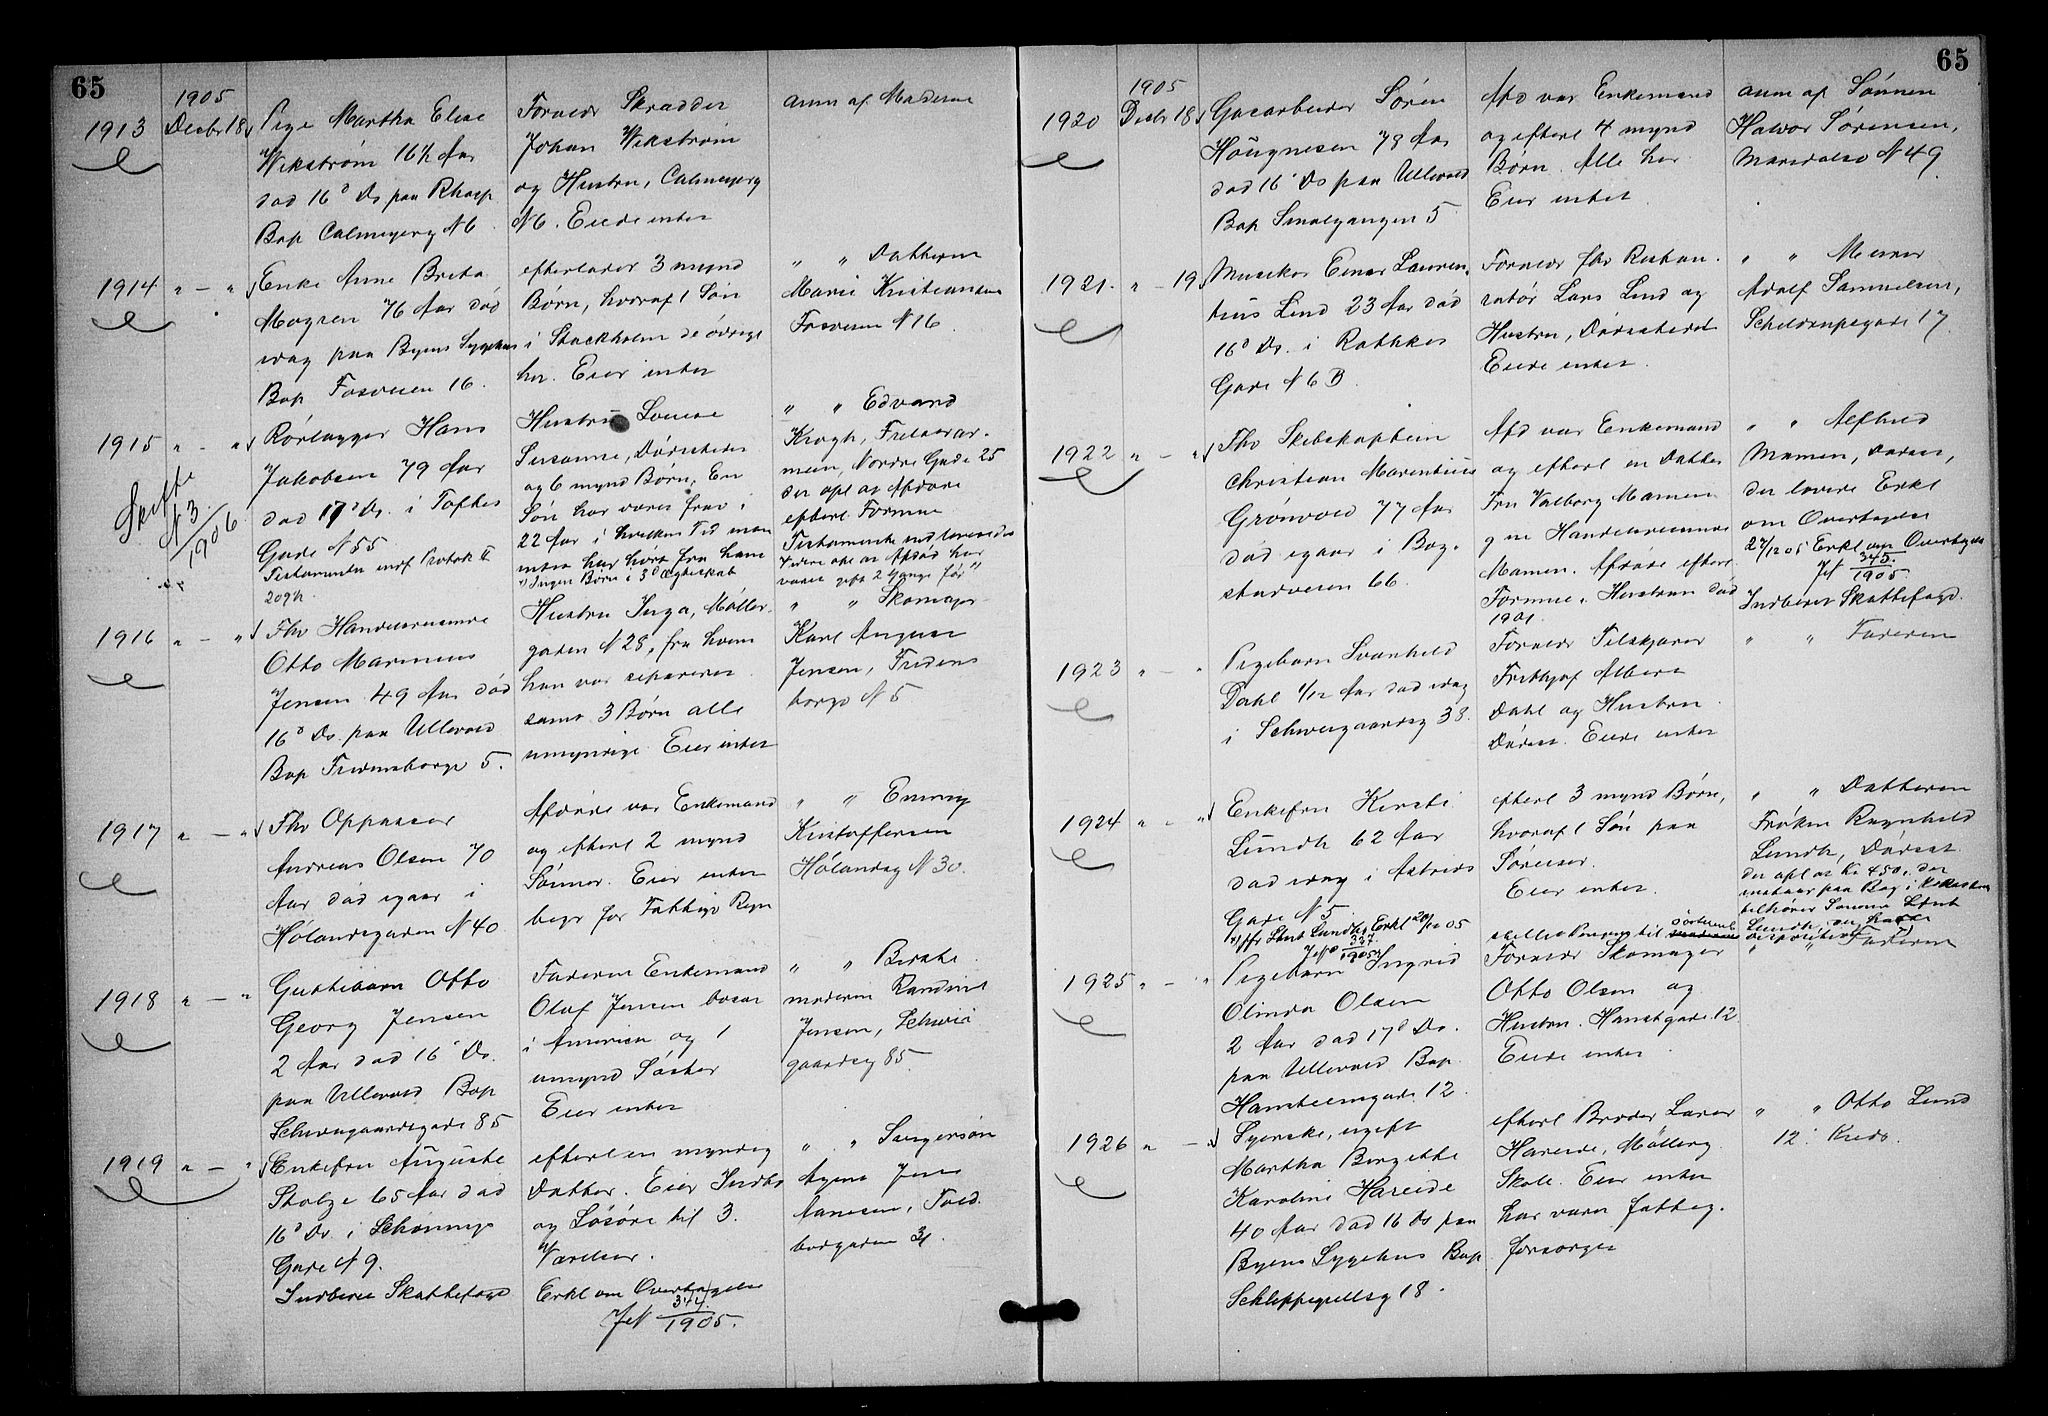 65
1905
1913 Decbr 18
Pige Martha Elise
Wikstrøm 16½ Aar
død 16d Ds paa Rhosp
Bop Calmeyerg N 6
Forældr Skrædder
Johan Wikstrøm
og Hustru, Calmeyerg
N 6. Eiede intet
anm af Moderen
1914 " — "
Enke Anne Breta
Magsen 76 Aar død
idag paa Byens Sygehus
Bop Fosveien 16.
efterlader 3 mynd
Børn, hvoraf 1 Søn
i Stockholm de øvrige
her. Eier intet
" " Datteren
Marie Kristiansen
Fosveien N 16
1915 " — "
Skifte
N 3
1906
Rørlægger Hans
Jakobsen 79 Aar
død 17d Ds. i Toftes
Gade N 55
Testamente indf Protok II
209h.
Hustru Louise
Susanne, Dødsstedet
og 6 mynd Børn, En
Søn har været fravi
22 Aar i hvilken Tid man
intet har hørt fra ham
Ingen Børn i 3d Ægteskab
" " Edvard
Krogh, Frelserar-
meen, Nordre Gade 25
der opl at Afdøde
efterl Formue
Testamente indleveredes
Videre opl at Afdøde har
været gift 2 Gange før
1916 " — "
Fhv Handelsreisende
Otto Marinius
Jensen 49 Aar død
16d Ds. paa Ullevold
Bop Fredensborgv 5.
Hustru Inga, Møller-
gaden N 28, fra hvem
han var separeret
samt 3 Børn alle
umyndige. Eier intet
" " Skomager
Karl August
Jensen, Fredens
borgv N 5
1917 " — "
Fhv Oppasser
Andreas Olsen 70
Aar død igaar i
Hølandsgaden N 40
Afdøde var Enkemand
og efterl 2 mynd
Sønner. Eier intet
begr for Fattigv Regn
" " Emmy
Kristoffersen
Hølandsg N 30.
1918 " — "
Guttebarn Otto
Georg Jensen
2 Aar død 16 Ds.
paa Ullevold Bop
Schweigaardsgade 85
Faderen Enkemand
Olaf Jensen bosat
i Amerika og 1
umynd Søster
Eier intet
" " Beste-
moderen Randine
Jensen, Schwei
gaardsg 85
1919 " — "
Enkefru Auguste
Stolze 65 Aar død
16d Ds. i Schønings
Gade N 9.
Indberet Skattefogd
efterl en myndig
Datter. Eier Indbo
og Løsøre til 3
Værelser.
Erkl om Overtagelse
JN 344/1905.
" " Svigersøn
Agent Jens
Aanesen, Told-
bodgaden 31.
65
1905
1920 Decbr 18
Gasarbeider Søren
Haugnesen 78 Aar
død 16 Ds paa Ullevold
Bop Smalgangen 5
Afd var Enkemand
og efterl 4 mynd
Børn. Alle her
Eier intet
anm af Sønnen
Halvor Sørensen,
Maridalsv N 49
1921. " — 19
Musiker Einar Lauren-
tius Lind 23 Aar død
16d Ds. i Rathkes
Gade N 6 B
Forældr fhv Restau-
ratør Lars Lind og
Hustru, Dødsstedet
Eiede intet
" " Murer
Adolf Samuelsen,
Schleppegade 17
1922 " — "
Fhv Skibskaptein
Christian Marentius
Grønvold 77 Aar
død igaar i Bog-
stadveien 66.
Afd var Enkemand
og efterl en Datter
Fru Valborg Mamen
g m Handelsreisende
Mamen. Afdøde efterl
Formue. Hustruen død
1901
" " Alfhild
Mamen, Datter,
der lovere Erkl
om Overtagelse
27/12 05 Erkl om Overtagelse
JN 345/1905
Indberet Skattefogd.
1923 " — "
Pigebarn Svanhild
Dahl 1/12 Aar død idag
i Schweigaardsg 38.
Forældr Filskjærer
Fridtjof Albert
Dahl og Hustru
Dødsst. Eiede intet
" " Faderen
1924 " — "
Enkefru Kirsti
Lundh 62 Aar
død idag i Astrids
Gade N 5
Lundhs Erkl 20/12 05
JN 337/1905
efterl 3 mynd Børn,
hvoraf 1 Søn paa
Søreiser.
Eier intet.
" " Datteren
Frøken Ragnhild
Lundh, Dødsst.
der opl at kr 450, der
indstaar paa Bog i
tilhører Sønnen
1925 " — "
Pigebarn Ingrid
Olinda Olsen
2 Aar død 17d Ds.
paa Ullevold Bop
Hansteensgade 12
Forældr Skomager
Otto Olsen og
Hustru. Hanstgade 12
Eiede intet
" Faderen
1926 " — "
Syerske, ugift
Martha Bergette
Karoline Hareide
40 Aar død 16 Ds paa
Byens Sygehus Bop
Schleppegrellsg 18.
efterl Broder Lærer
Hareide, Møllerg
Skole. Eier intet
har været fattig-
forsørget
" " Otto Lund
12' Kreds.